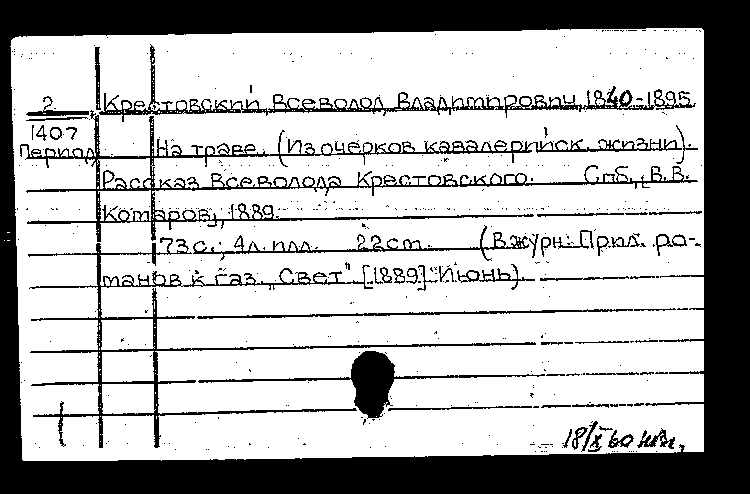 2 Крестовский, Всеволод Владимирович, 1840-1895
1407
Период На траве. (Из очерков кавалерийск. жизни).
Рассказ Всеволода Крестовского. Спб., [В.В.
Комаров], 1889.
73 с.; 4 л. илл. 22 cm. (В журн: Прил. ро-
манов к газ. „Свет" [1889] Июнь).
18/X 60